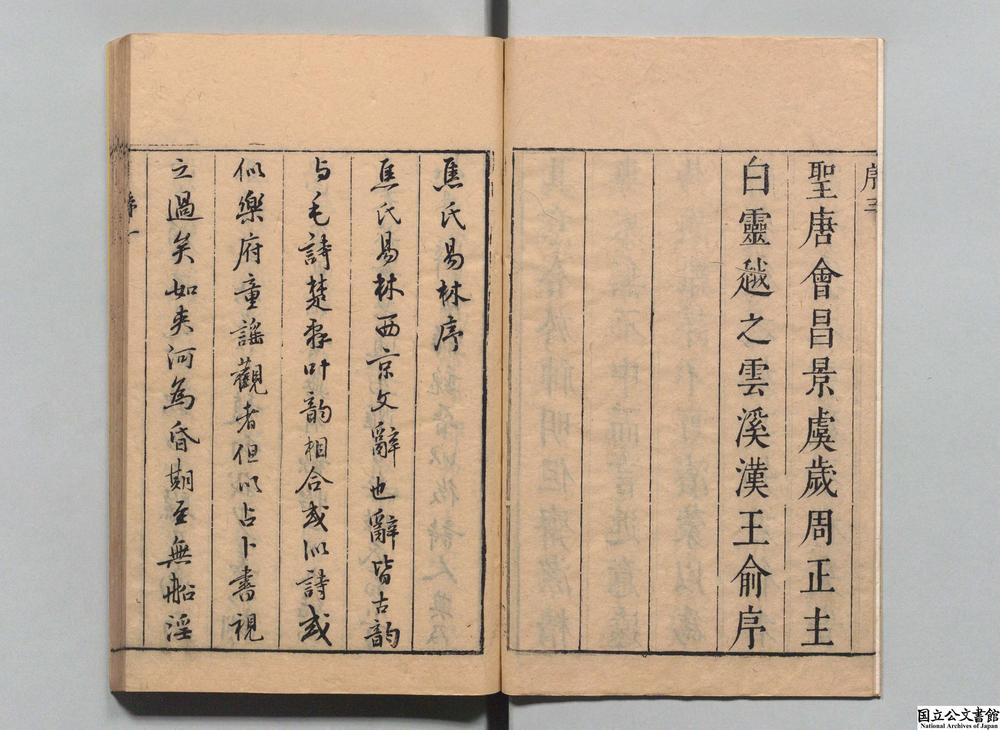 聖唐會昌景虞歲周正主
白靈越之雲溪漢王俞序
焦氏易林序
焦氏易林西京文辭也辭皆古韵
与毛詩楚辞叶韵相合或似詩或
似樂府童謠觀者但以占卜書視
之過矣如夾河為昏期至無船淫
序一
国立公文書館
National Archives of Japan